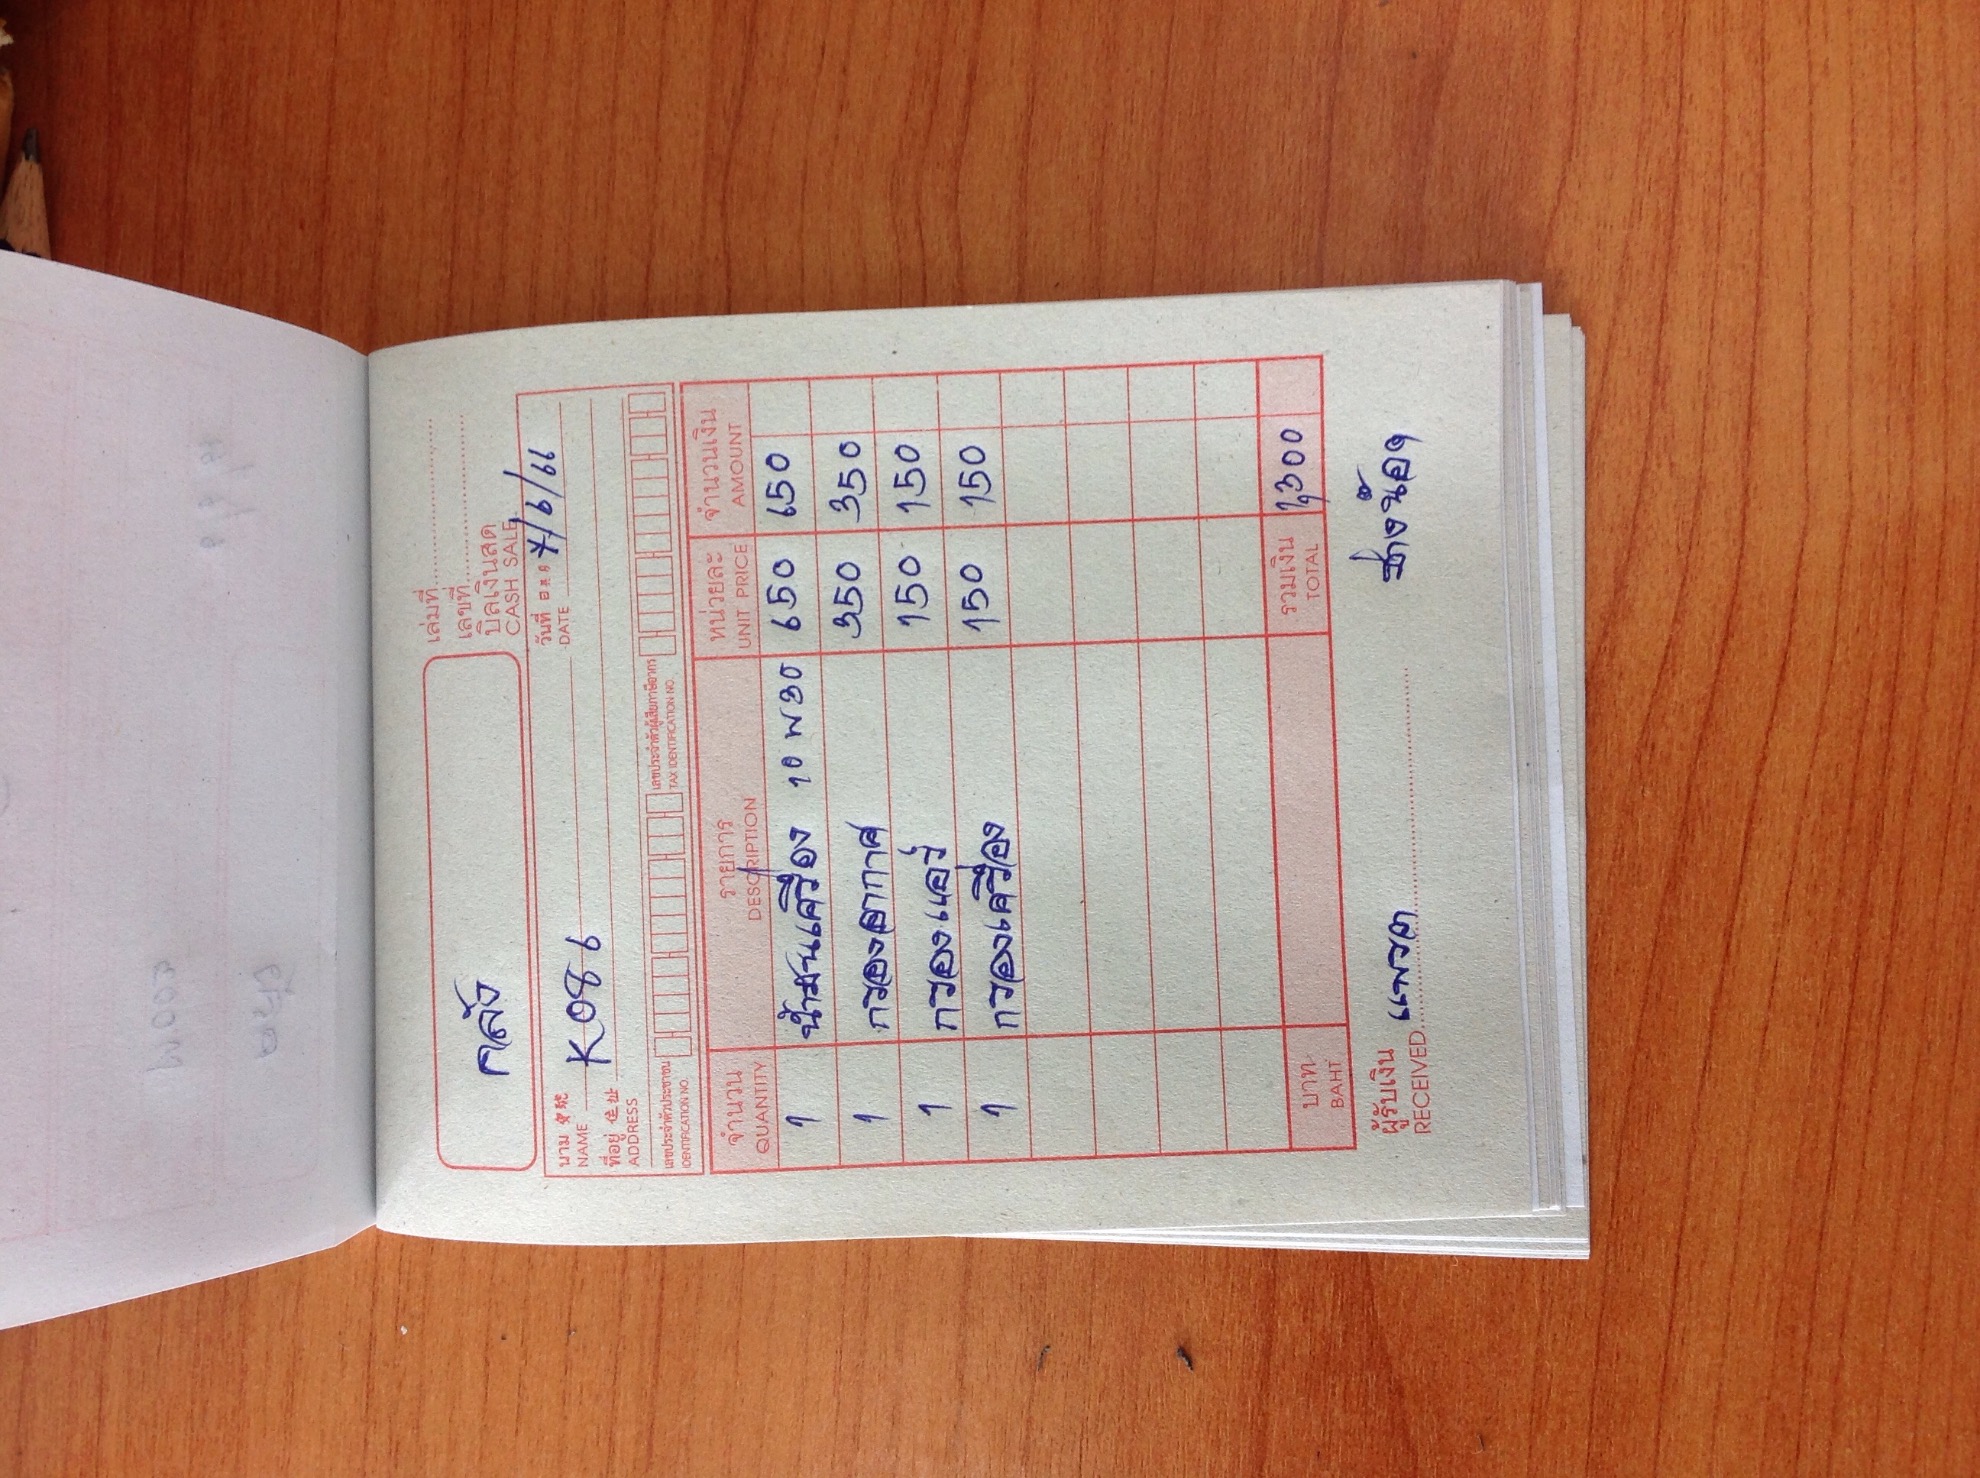 เล่มที่
เลขที่
บิลเงินสด
CASH SALE
กลัง
วันที่ 日期 7/6/66
DATE
นาม 寶號 K086
NAME
ที่อยู่ 住址
ADDRESS
เลขประจำตัวประชาชน เลขประจำตัวผู้เสียภาษีอากร
IDENTIFICATION NO. TAX IDENTIFICATION NO.
จำนวน รายการ หน่วยละ จำนวนเงิน
QUANTITY DESCRIPTION UNIT PRICE AMOUNT
1 น้ำมันเครื่อง 10 W30 650 650
1 กรองอากาศ 350 350
1 กรองแอร์ 150 150
1 กรองเครื่อง 150 150
บาท รวมเงิน 1,300
BAHT TOTAL
ผู้รับเงิน แพรว ช่างน้อง
RECEIVED